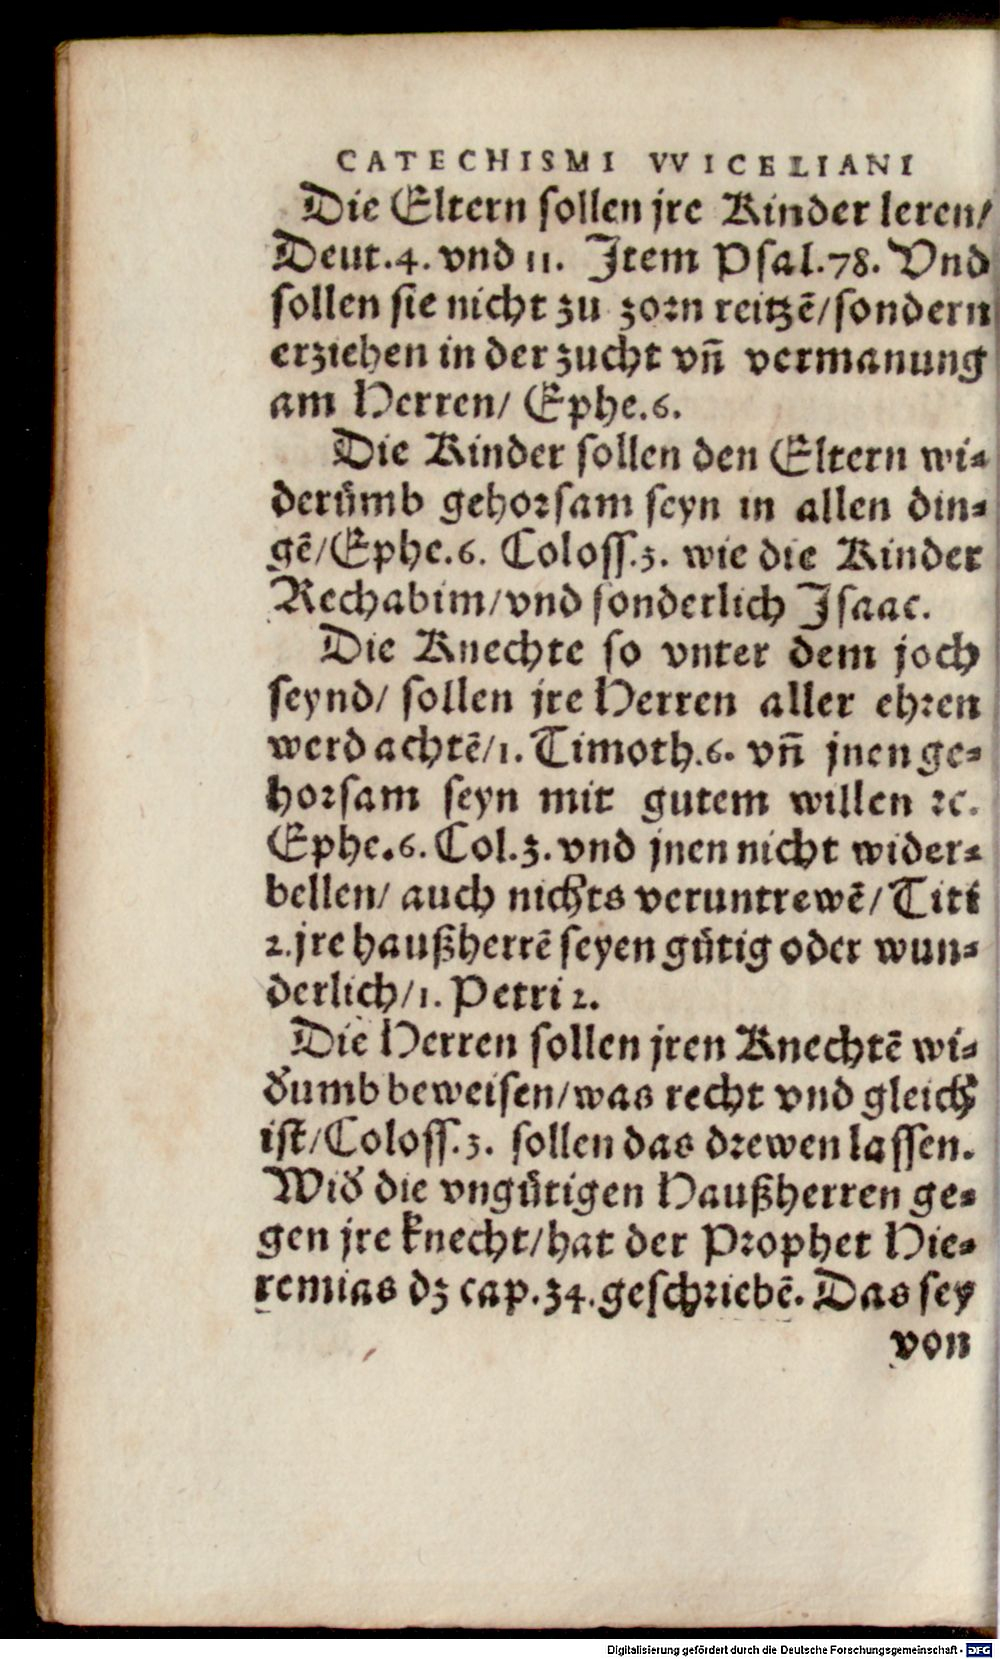 CATECHISMI VVICELIANI
Die Eltern sollen jre Kinder leren/
Deut.4. vnd 11. Item Psal.78. Vnd
sollen sie nicht zu zorn reitzē/sondern
erziehen in der zucht vñ vermanung
am Herren/ Ephe.6.
Die Kinder sollen den Eltern wi-
derümb gehorsam seyn in allen din-
gē/Ephe.6. Coloss.3. wie die Kinder
Rechabim/vnd sonderlich Isaac.
Die Knechte so vnter dem joch
seynd/ sollen jre Herren aller ehren
werd achtē/1. Timoth.6. vñ jnen ge-
horsam seyn mit gutem willen ꝛc.
Ephe.6. Col.3. vnd jnen nicht wider-
bellen/ auch nichts veruntrewē/ Titi
2. jre haußherrē seyen gütig oder wun-
derlich/1. Petri 2.
Die Herren sollen jren Knechtē wi-
d̕umb beweisen/was recht vnd gleich
ist/Coloss.3. sollen das drewen lassen.
Wid̕ die vngütigen Haußherren ge-
gen jre knecht/hat der Prophet Hie-
remias dz cap.34. geschriebē. Das sey
von
Digitalisierung gefördert durch die Deutsche Forschungsgemeinschaft - DFG